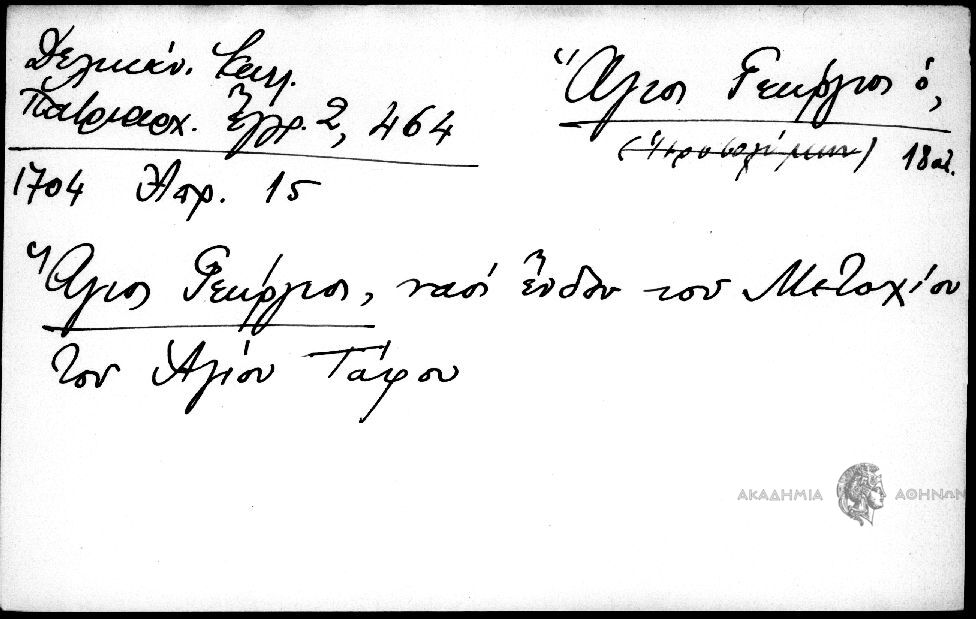 Δελικάν. Καλλ.
Πατριαρχ. Ἔγγρ. 2, 464
1704 Ἀπρ. 15
Ἅγιος Γεώργιος ὁ,
(Ἱεροσολύμων) 18 αἰ.
Ἅγιος Γεώργιος, ναὸς ἔνδον τοῦ Μετοχίου
τοῦ Ἁγίου Τάφου
ΑΚΑΔΗΜΙΑ ΑΘΗΝΩΝ